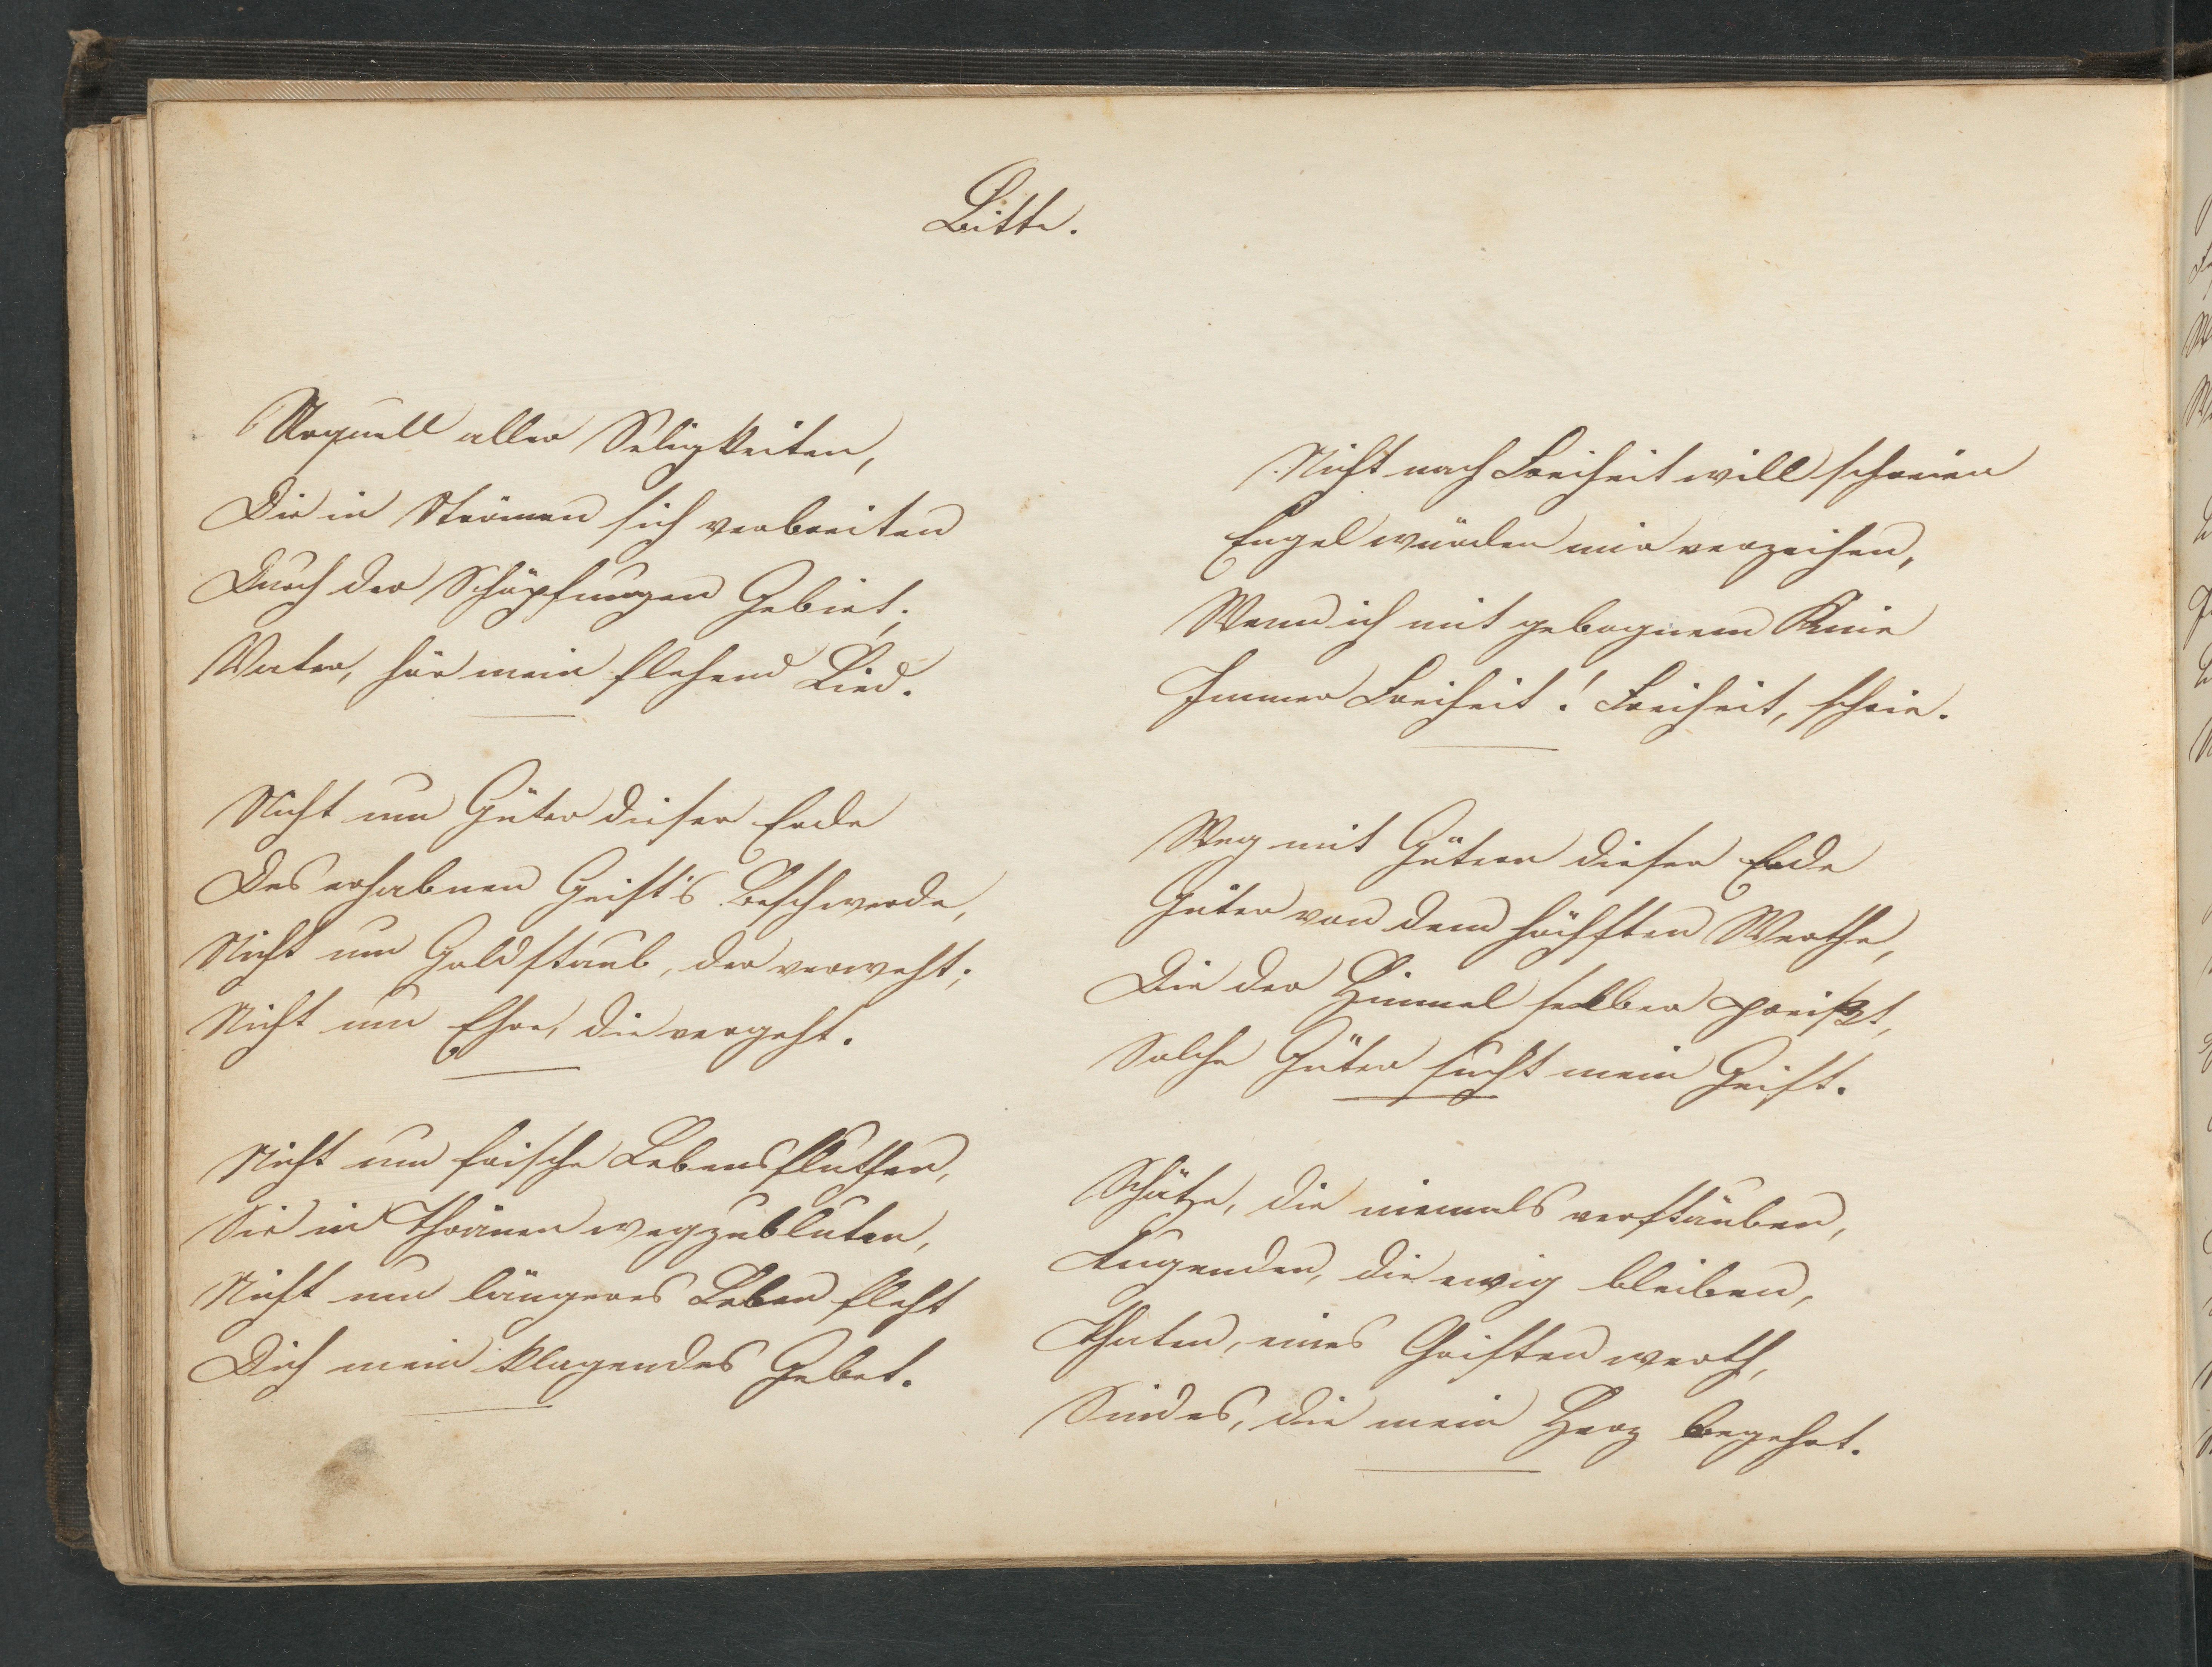 Bitte.
Urquell aller Seligkeiten,
Die in Strömen sich verbreiten
Durch der Schöpfungen Gebiet;
Vater, hör mein flehend Lied.
Nicht um Güter dieser Erde
Des erhabnen Geist's Beschwerde,
Nicht um Goldstaub, der verweht;
Nicht um Ehre, die vergeht.
Nicht um frische Lebensfluthen,
Sie in Thränen wegzubluten,
Nicht um längeres Leben fleht
Dich mein klagendes Gebet.
Nicht nach Freiheit will schreien
Engel würden mir verzeihen,
Wenn ich mit gebognem Knie
Immer Freiheit! Freiheit, schrie.
Weg mit Gütern dieser Erde
Güter von dem höchsten Werthe,
Die der Himmel selber preißt,
Solche Güter sucht mein Geist.
Schätze, die niemals verstäuben,
Tugenden, die ewig bleiben,
Thaten, eines Christen werth,
Sind es, die mein Herz begehrt.